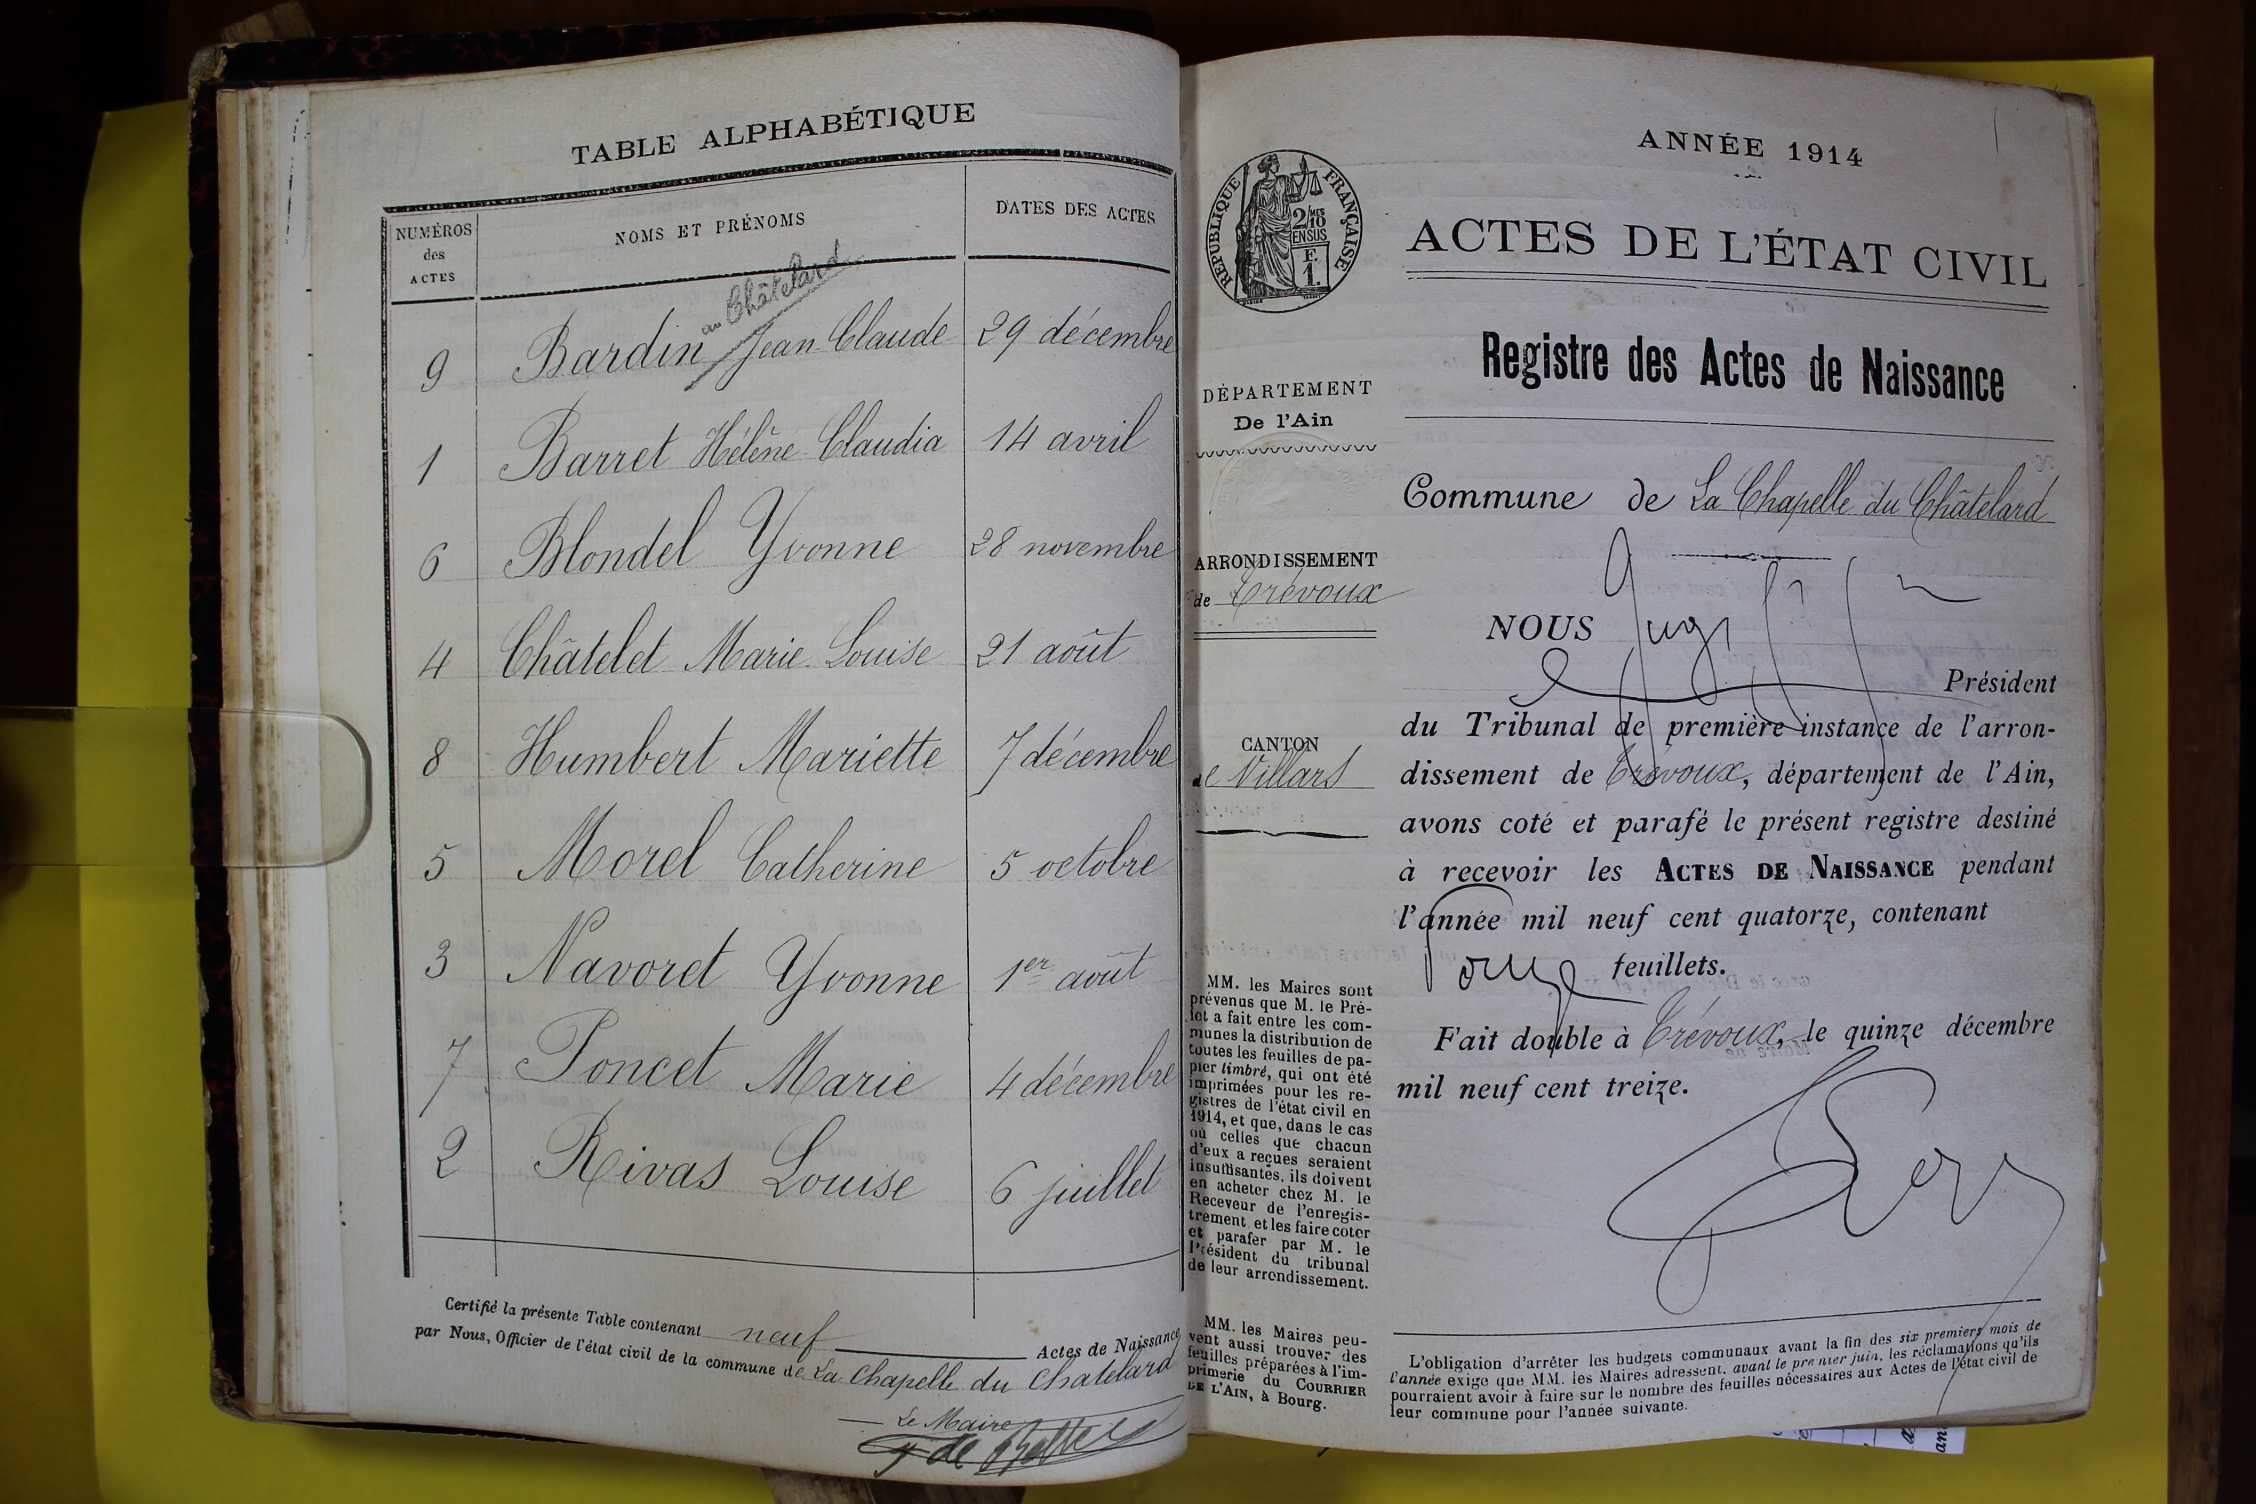 TABLE ALPHABÉTIQUE
NUMÉROS
des
ACTES
NOMS ET PRÉNOMS
DATES DES ACTES
au Châtelard
9 Bardin Jean-Claude 29 décembre
1 Barret Hélène Claudia 14 avril
6 Blondel Yvonne 28 novembre
4 Châtelet Marie Louise 21 août
8 Humbert Mariette 7 décembre
5 Morel Catherine 5 octobre
3 Navoret Yvonne 1er août
7 Poncet Marie 4 décembre
2 Rivas Louise 6 juillet
Certifié la présente Table contenant neuf Actes de Naissance
par Nous, Officier de l'état civil de la commune de La Chapelle du Chatelard
Le Maire
RÉPUBLIQUE FRANÇAISE
2/10 MES
EN SUS
F.
1.
DÉPARTEMENT
De l'Ain
ARRONDISSEMENT
de Trévoux
CANTON
de Villars
MM. les Maires sont
prévenus que M. le Pré-
fet a fait entre les com-
munes la distribution de
toutes les feuilles de pa-
pier timbré, qui ont été
imprimées pour les re-
gistres de l'état civil en
1914, et que, dans le cas
où celles que chacun
d'eux a reçues seraient
insuffisantes, ils doivent
en acheter chez M. le
Receveur de l'enregis-
trement et les faire coter
et parafer par M. le
Président du tribunal
de leur arrondissement.
MM. les Maires peu-
vent aussi trouver des
feuilles préparées à l'im-
primerie du COURRIER
DE L'AIN, à Bourg.
ANNÉE 1914
ACTES DE L'ÉTAT CIVIL
Registre des Actes de Naissance
Commune de La Chapelle du Châtelard
NOUS
Président
du Tribunal de première instance de l'arron-
dissement de Trévoux, département de l'Ain,
avons coté et parafé le présent registre destiné
à recevoir les ACTES DE NAISSANCE pendant
l'année mil neuf cent quatorze, contenant
feuillets.
Fait double à Trévoux, le quinze décembre
mil neuf cent treize.
L'obligation d'arrêter les budgets communaux avant la fin des six premiers mois de
l'année exige que MM. les Maires adressent, avant le premier juin, les réclamations qu'ils
pourraient avoir à faire sur le nombre des feuilles nécessaires aux Actes de l'état civil de
leur commune pour l'année suivante.